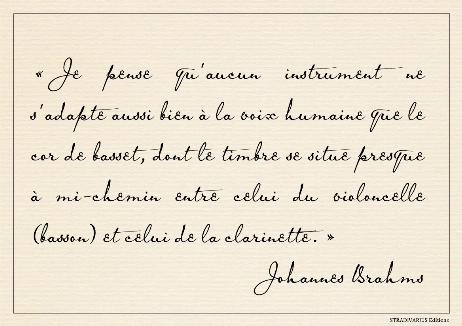 « Je pense qu'aucun instrument ne
s'adapte aussi bien à la voix humaine que le
cor de basset, dont le timbre se situe presque
à mi-chemin entre celui du violoncelle
(basson) et celui de la clarinette. »
Johannes Brahms
STRADIVARIUS Editions